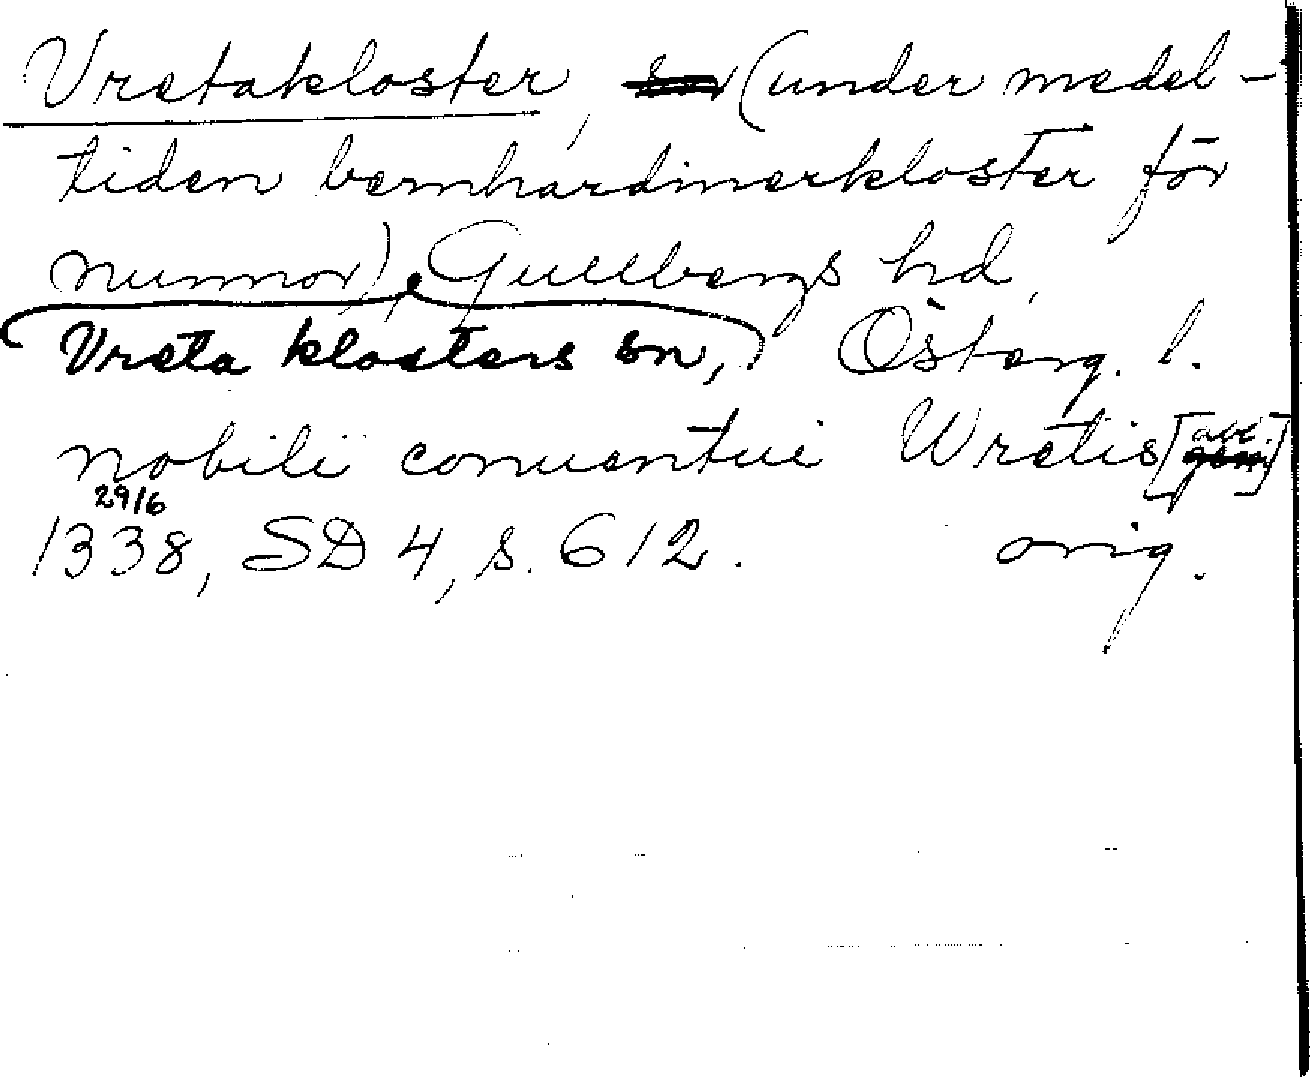 Vretakloster, (under medel-
tiden bernhardinerkloster för
nunnor), Gullbergs hd,
Vreta klosters sn, Österg. l.
nobili conuentui Wretis [abl.]
29/6
1338, SD 4, s. 612. orig.